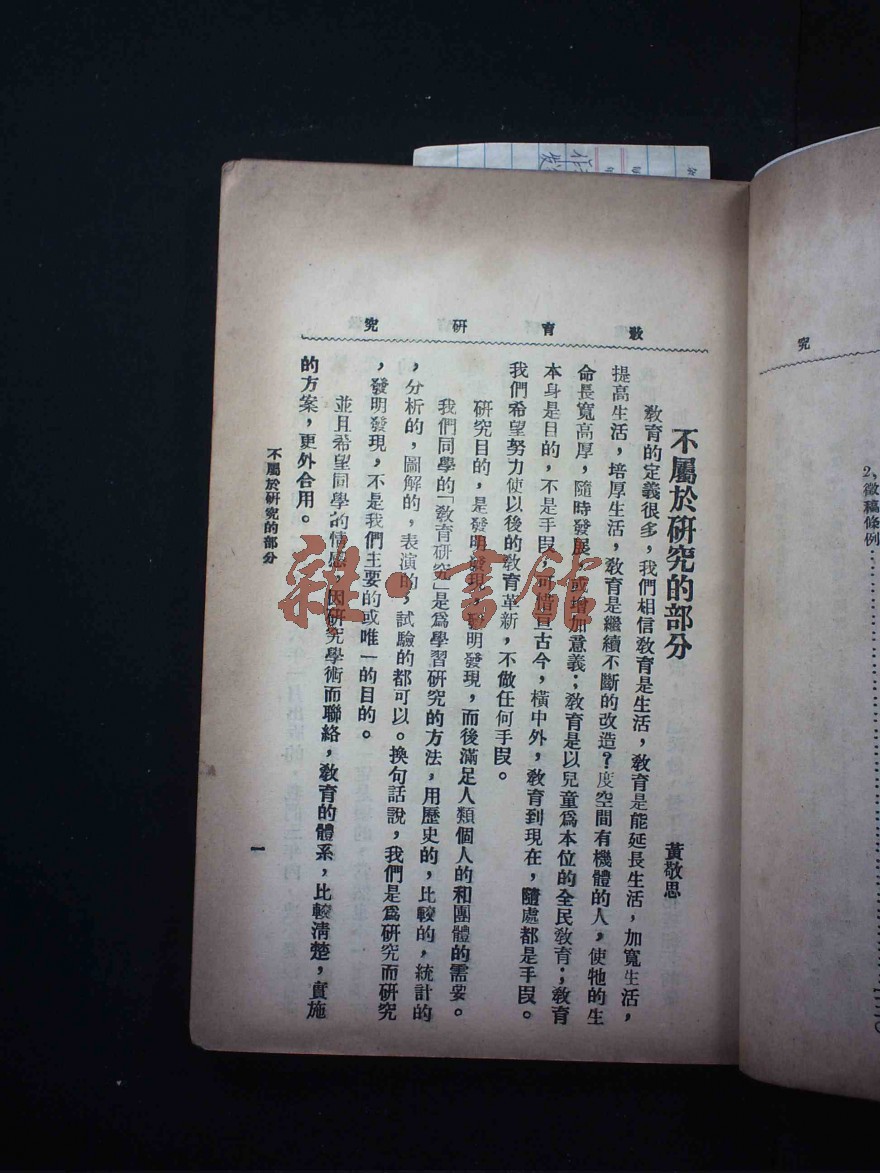 教育研究
不屬於研究的部分
黃敬思
教育的定義很多，我們相信教育是生活，教育是能延長生活，加寬生活，
提高生活，培厚生活，教育是繼續不斷的改造？度空間有機體的人，使牠的生
命長寬高厚，隨時發展，或增加意義；教育是以兒童爲本位的全民教育；教育
本身是目的，不是手段，可惜亘古今，橫中外，教育到現在，隨處都是手段。
我們希望努力使以後的教育革新，不做任何手段。
研究目的，是發明發現，發明發現，而後滿足人類個人的和團體的需要。
我們同學的「教育研究」是爲學習研究的方法，用歷史的，比較的，統計的
，分析的，圖解的，表演的，試驗的都可以。換句話說，我們是爲研究而研究
，發明發現，不是我們主要的或唯一的目的。
並且希望同學的情感，因研究學術而聯絡，教育的體系，比較淸楚，實施
的方案，更外合用。
不屬於研究的部分
一
究
2,徵稿條例
雜·書館